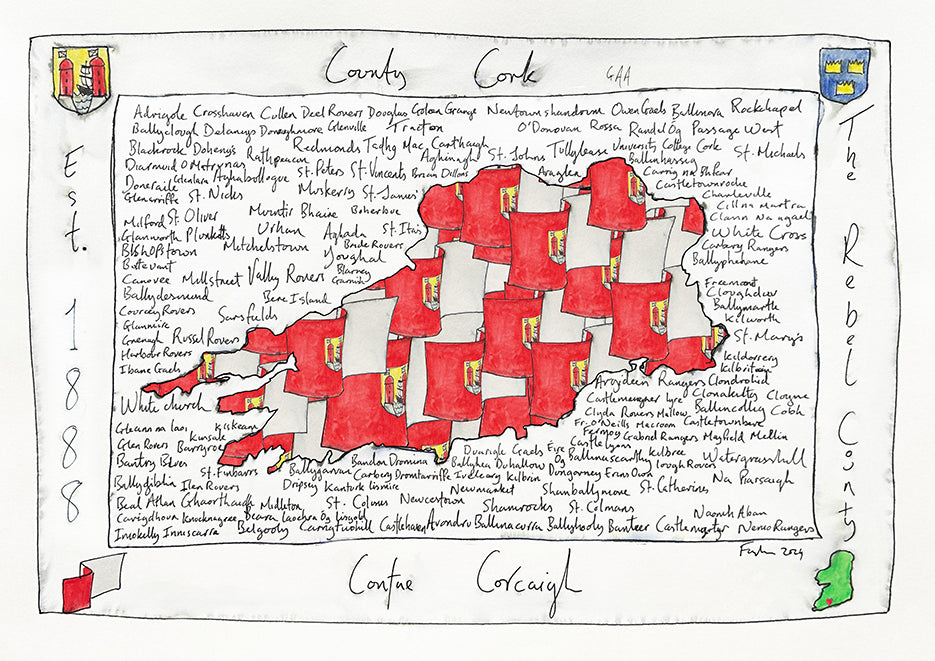 County Cork GAA
Adrigole Crosshaven Cullen Deel Rovers Douglas Goleen Grange Newtownshandrum Owen Gaels Bullinora Rockchapel
Ballyclough Delanys Donoughmore Glenville Tracton O'Donovan Rossa Randal Óg Passage West
Blackrock Dohenys Rathpeacon Redmonds Tadhg Mac Carthaigh Aghinagh St. Johns Tullylease University College Cork St. Michaels
Diarmuid O Matrynas Glenlara Aghabollogue St. Peters St. Vincents Brian Dillons Araglen Ballinhassig Carrig na Bhfear
Doneraile St. Nicks Muskerry St. James' Castletownroche
Glengarriffe Charleville
Milford St. Oliver Plunketts Muintir Bhaire Boherbue Cill na Martra
Glanworth Urhan Aghada St. Ita's Clann Na nGael
Bishopstown Mitchelstown Bride Rovers White Cross
Buttevant Youghal Carbery Rangers
Canovee Millstreet Valley Rovers Blarney Garnish Ballyphehane
Ballydesmond Bere Island Freemount
Courcey Rovers Sarsfields Cloughduv
Glanmire Ballymartle
Comeragh Russel Rovers Kilworth
Harbour Rovers St. Mary's
Ibane Gaels Kildorrery
Kilbrittain
White church Argideen Rangers Clondrohid
Castlemagner Lyre Clonakilty Cloyne
Gleann na laoi Kiskeam Clyda Rovers Mallow Ballincollig Cobh
Glen Rovers Kinsale Barryroe Fr. O'Neills Macroom Castletownbere
Bantry Blues Dunarle Gaels Éire Óg Fermoy Gabriel Rangers Mayfield Mellin
St. Finbarrs Ballygarvan Bandon Dromina Ballyhea Duhallow Castlelyons Ballinascarthy Kilbree Watergrasshill
Ballyjiblihin Ilen Rovers Dripsey Carbery Dromtarriffe Iveleary Kilbrin Dungarney Erins Own Lough Rovers Na Piarsaigh
Beal Athan Ghaorthaidh Midleton Kanturk Lismire Newmarket Shanballymore St. Catherines
Carrigdhoun Knocknagree Deara Laochra Óg Lisgold St. Colums Newcestown Shamrocks St. Colmans Naomh Aban
Imokilly Inniscarra Belgooly Carrigtwohill Castlehaven Avondhu Ballinacurra Ballyhooly Banteer Castlemartyr Nemo Rangers
Est. 1888
The Rebel County
Contae Corcaigh
2024